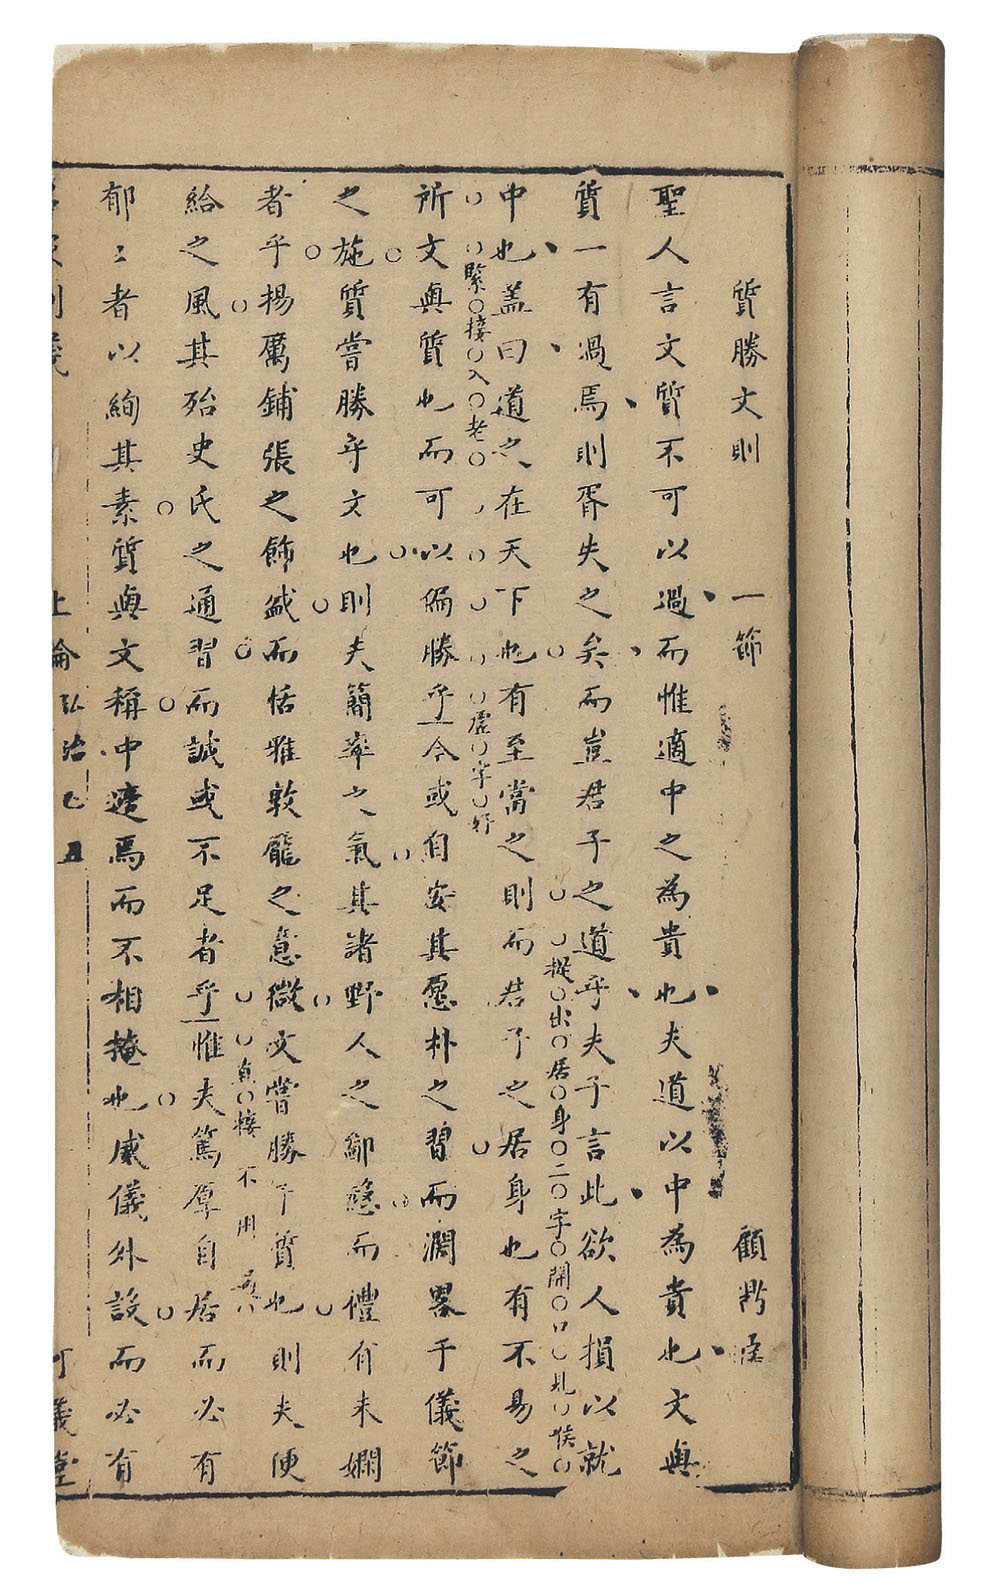 質勝文則　一節　顧鼎臣
聖人言文質不可以過而惟適中之為貴也夫道以中為貴也文與
質一有過焉則胥失之矣而豈君子之道乎夫子言此欲人損以就
提出居身二字開口
中也盖曰道之在天下也有至當之則而君子之居身也有不易之
緊接入老　虛字好
所文與質也而可以偏勝乎今或自安其愿朴之習而濶畧于儀節
之施質嘗勝乎文也則夫簡率之氣其諸野人之鄙慤而禮有未嫻
者乎揚厲鋪張之飾盛而恬雅敦龐之意微文嘗勝于質也則夫便
接不用
給之風其殆史氏之通習而誠或不足者乎惟夫篤厚自居而必有
郁〻者以絢其素質與文稱中遽焉而不相掩也威儀外設而必有
上論　弘治乙丑　可儀堂